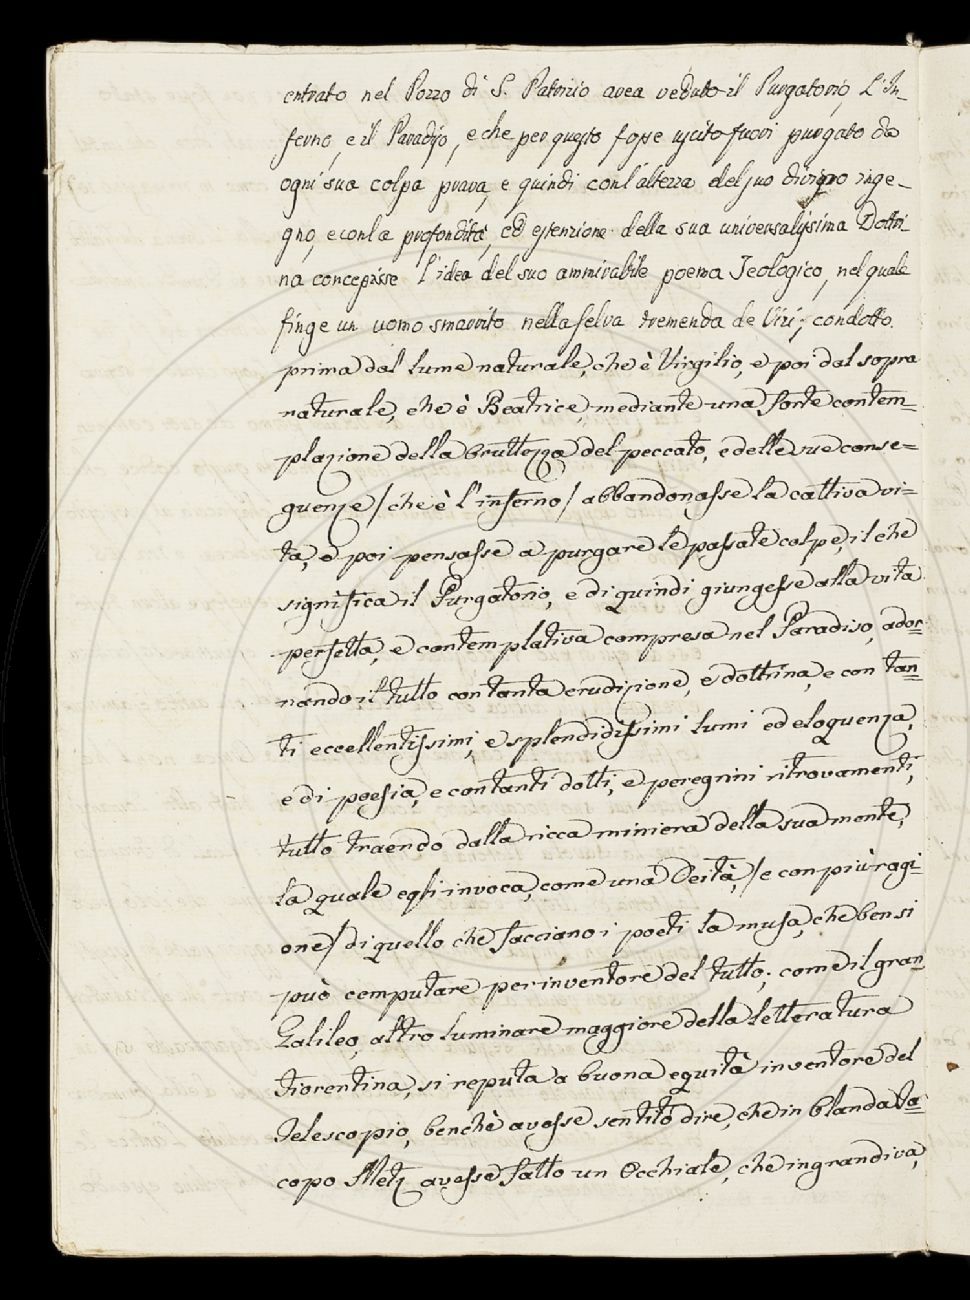 entrato nel Pozzo di S. Patrizio avea veduto il Purgatorio, L'In_
ferno, e il Paradiso, e che per questo fosse uscito fuori purgato da
ogni sua colpa prava, e quindi con l'altezza del suo divino inge_
gno, e con la profondità, ed estenzione della sua universalissima Dottri_
na concepisse l'idea del suo ammirabile poema Teologico, nel quale
finge un uomo smarrito nella selva tremenda de Vizi, condotto
prima dal lume naturale, che è Virgilio, e poi dal sopra
naturale, che è Beatrice, mediante una forte contem=
plazione della bruttezza del peccato, e delle sue conse=
guenze / che è l'inferno / abbandonasse la cattiva vi=
ta, e poi pensasse a purgare le passate colpe, il che
significa il Purgatorio, e di quindi giungesse alla vita
perfetta, e contemplativa compresa nel Paradiso, ador=
nando il tutto con tanta erudizione, e dottrina, e con tan=
ti eccellentissimi, e splendidissimi lumi ed eloquenza,
e di poesia, e con tanti dotti, e peregrini ritrovamenti,
tutto traendo dalla ricca miniera della sua mente,
la quale egli invoca, come una Deità, / e con più ragi=
one / di quello che facciano i poeti la musa, che ben si
può computare per inventore del tutto, come il gran
Galileo, altro luminare maggiore della letteratura
Fiorentina, si reputa a buona equità inventore del
Telescopio, benchè avesse sentito dire, che in Olanda Ia=
copo Metz avesse fatto un Occhiale, che ingrandiva,